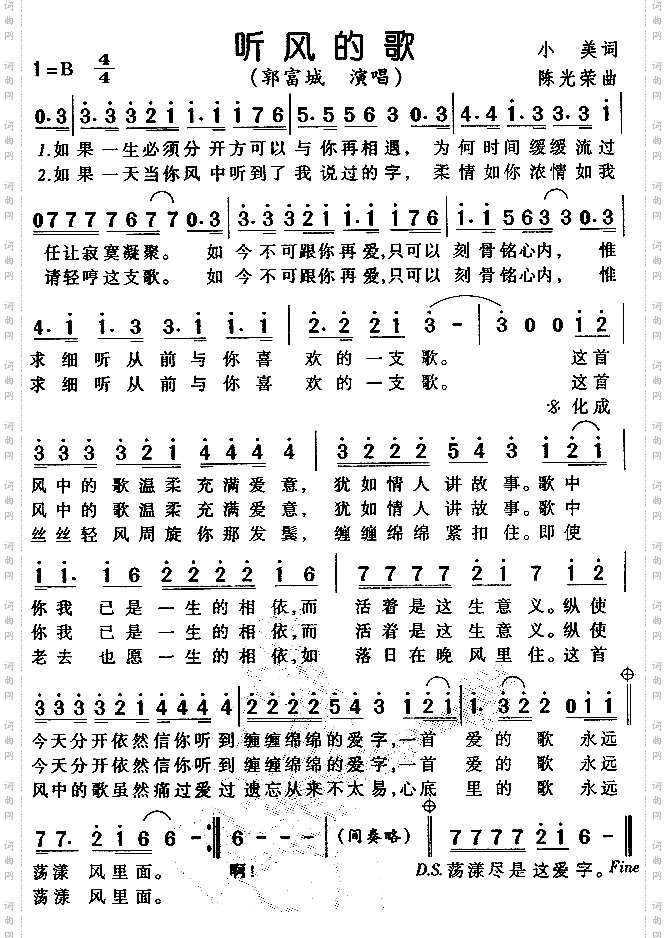 听风的歌
1=B 4/4
(郭富城 演唱)
小 美词
陈光荣曲
0·3 3·3321 1·1176 5·5563 0·3 4·41·3 3321
1.如果一生必须分开方可以与你再相遇，为何时间缓缓流过
2.如果一天当你风中听到了我说过的字，柔情如你浓情如我
07777677 0·3 3·3321 1·1176 1·15633 0·3
任让寂寞凝聚。如今不可跟你再爱,只可以刻骨铭心内，惟
请轻哼这支歌。如今不可跟你再爱,只可以刻骨铭心内，惟
4·1 1·3 3·1 1·1 2·2 21 3 - 3 0 0 12
求细听从前与你喜欢的一支歌。这首
求细听从前与你喜欢的一支歌。这首
化成
333 321 4444 3222 2543 121
风中的歌温柔充满爱意，犹如情人讲故事。歌中
风中的歌温柔充满爱意，犹如情人讲故事。歌中
丝丝轻风周旋你那发鬓，缠缠绵绵紧扣住。即使
11· 16 2222 16 7777 217 12
你我已是一生的相依,而活着是这生意义。纵使
你我已是一生的相依,而活着是这生意义。纵使
老去也愿一生的相依,如落日在晚风里住。这首
333 321 4444 22222543 121 1· 322 011
今天分开依然信你听到缠缠绵绵的爱字,一首爱的歌永远
今天分开依然信你听到缠缠绵绵的爱字,一首爱的歌永远
风中的歌虽然痛过爱过遗忘从来不太易,心底里的歌永远
77· 2166 - 6 - - - (间奏略) 7777 216 -
荡漾风里面。啊！ D.S.荡漾尽是这爱字。Fine
荡漾风里面。
词曲网